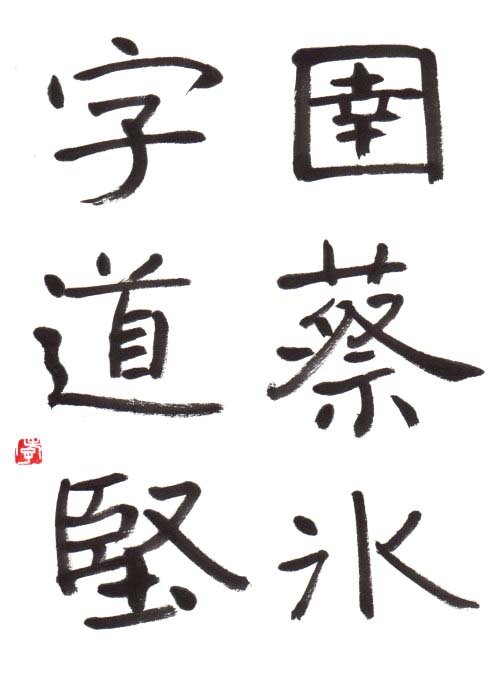 圉蔡氷
字道堅